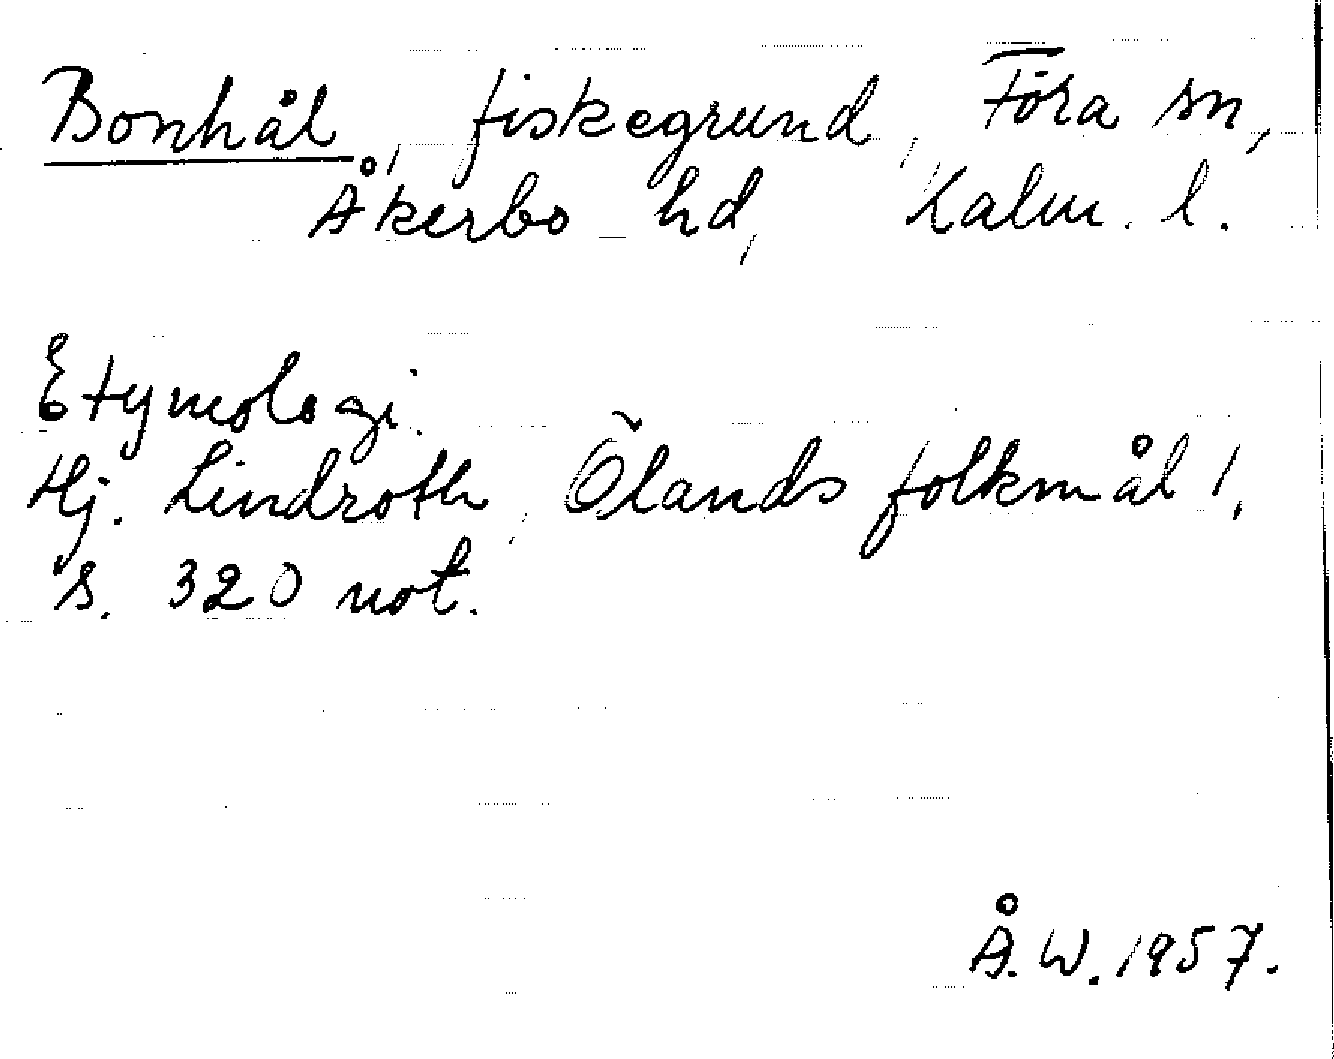 Bonhål, fiskegrund, Föra sn,
Åkerbo hd, Kalm. l.
Etymologi.
Hj. Lindroth, Ölands folkmål 1,
s. 320 not.
Å. W. 1957.